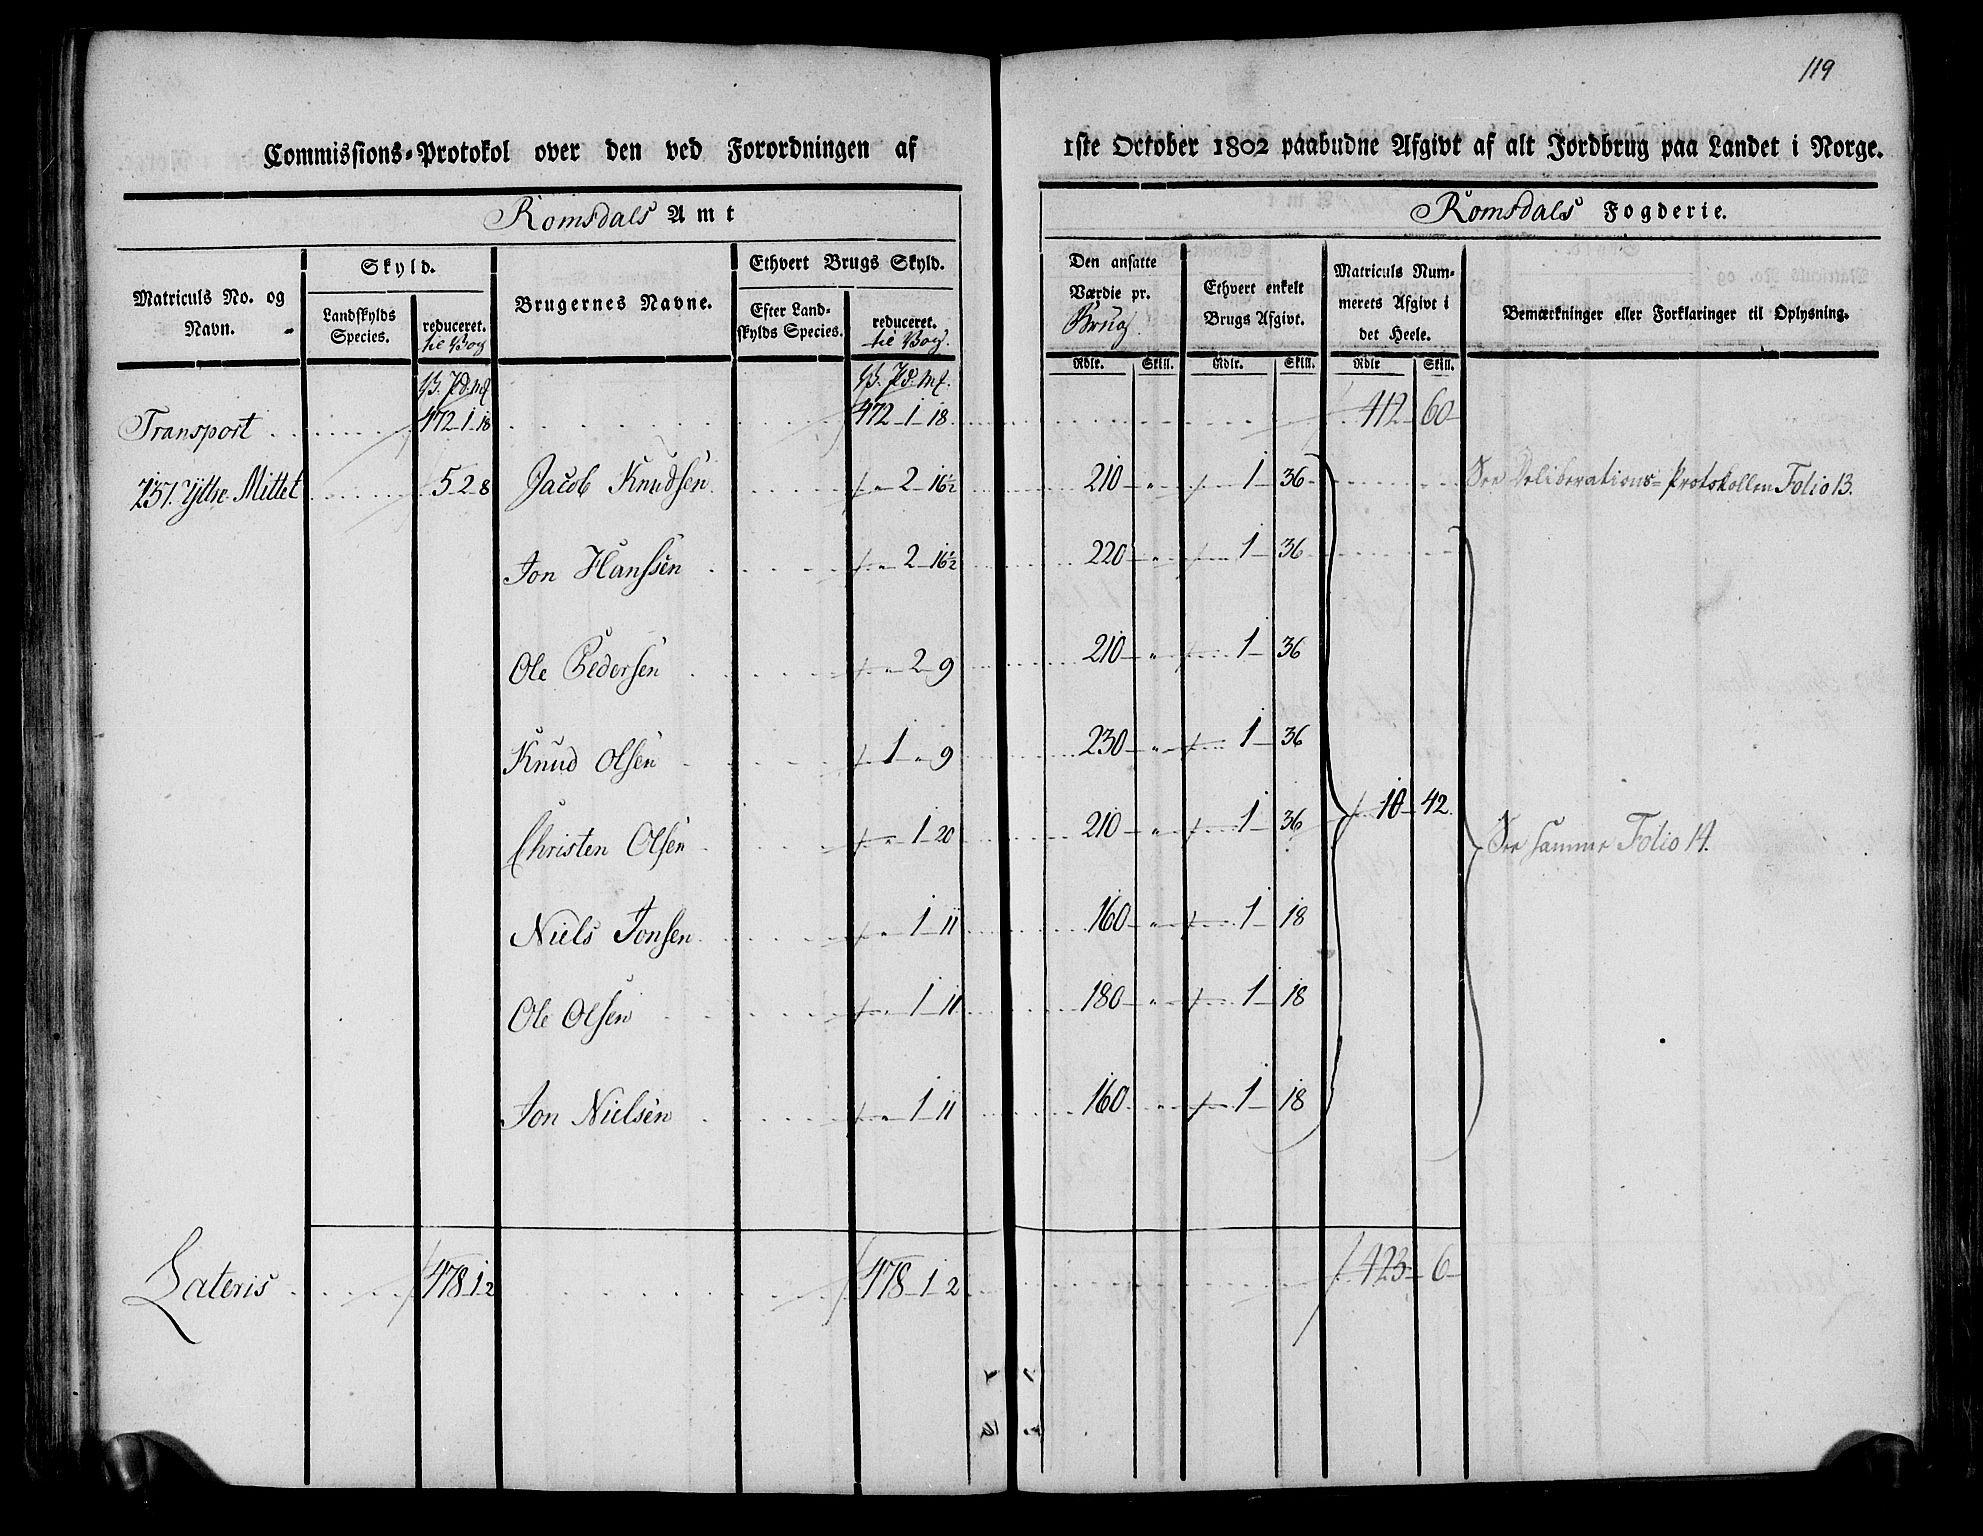 119
Commissions-Protokol over den ved Forordningen af 1ste October 1802 paabudne Afgivt af alt Jordbrug paa Landet i Norge.
Romsdals Amt
Romsdals Fogderie.
Matriculs No. og Navn.
Skyld.
Landskylds Species.
reduceret. til Vog
Brugernes Navne.
Ethvert Brugs Skyld.
Efter Landskylds Species.
reduceret. til Vog.
Den ansatte Værdie pr. Brug.
Ethvert enkelt Brugs Afgivt.
Matriculs Nummerets Afgivt i det Heele.
Bemærkninger eller Forklaringer til Oplysning.
Rdlr. Skill. Rdlr. Skill. Rdlr Skill.
V. Pd. mk V. Pd. mk.
Transport 472-1-18 472-1-18 412-60
257. Yttre Mittet 5-2-8 Jacob Knudsen 〃 2-16½ 210 〃 1-36 See Deliberations-Protokollen Folio 13.
Jon Hanssen 〃 2-16½ 220 〃 1-36
Ole Pedersen 〃 2-9 210 〃 1-36
Knud Olsen 1 〃 9 230 〃 1-36
Christen Olsen 〃 1-20 210 〃 1-36 10-42. See samme Folio 14.
Niels Jonsen 〃 1-11 160 〃 1-18
Ole Olsen 〃 1-11 180 〃 1-18
Jon Nielsen 〃 1-11 160 〃 1-18
Lateris 478-1-2 478-1-2 423-6